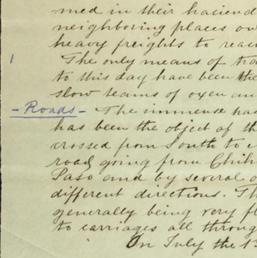 med in their haciend
neighboring places ow
heavy freights to reac
1 The only means of tra
to this day have been the
slow teams of oxen an
- Roads - The immense
has been the object of th
crossed from South to
road going from Chih
Paso and by several o
different directions. Th
generally being very f
to carriages all throug
On July the 1